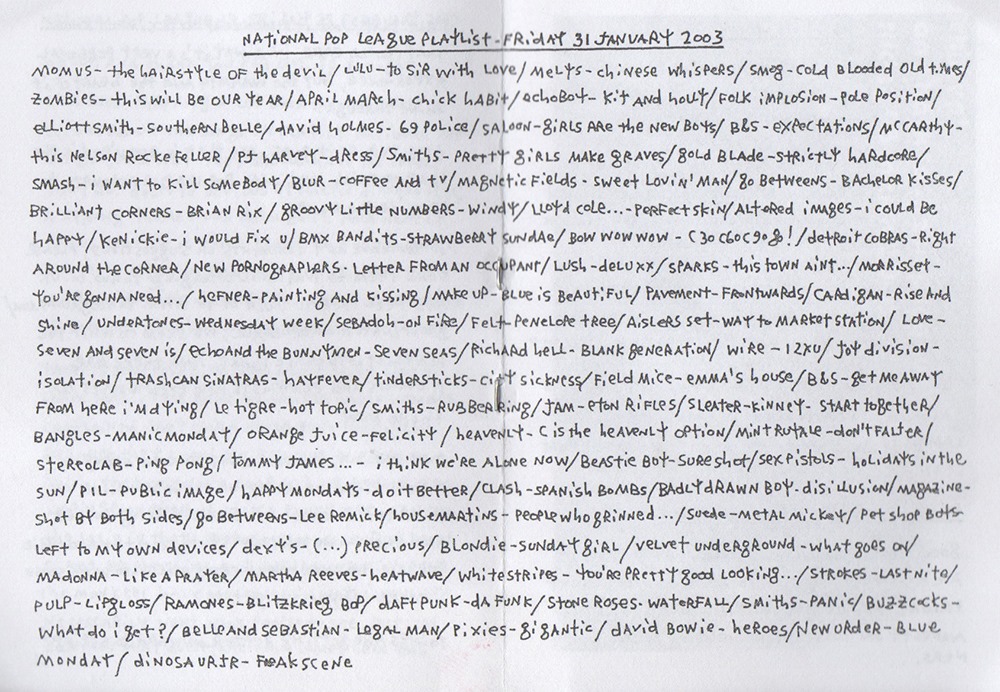 NATIONAL POP LEAGUE PLAYLIST - FRIDAY 31 JANUARY 2003
MOMUS - the HAIRSTYLE OF the DEVIL / LULU - to SIR WITH LOVE / MELYS - CHINESE WHISPERS / SMOG - COLD BLOODED OLD TIMES /
ZOMBIES - THIS WILL BE OUR YEAR / APRIL MARCH - CHICK HABIT / ECHOBOY - KIT AND HOLLY / FOLK IMPLOSION - POLE POSITION /
ELLIOTT SMITH - SOUTHERN BELLE / DAVID HOLMES - 69 POLICE / SALOON - GIRLS ARE the NEW BOYS / B&S - EXPECTATIONS / MCCARTHY -
THIS NELSON ROCKEFELLER / PJ HARVEY - DRESS / SMITHS - PRETTY GIRLS MAKE GRAVES / GOLD BLADE - STRICTLY HARDCORE /
SMASH - i WANT to KILL SOMEBODY / BLUR - COFFEE AND TV / MAGNETIC FIELDS - SWEET LOVIN' MAN / GO BETWEENS - BACHELOR KISSES /
BRILLIANT CORNERS - BRIAN RIX / GROOVY LITTLE NUMBERS - WINDY / LLOYD COLE... - PERFECT SKIN / ALTERED IMAGES - i COULD BE
HAPPY / KENICKIE - i WOULD FIX U / BMX BANDITS - STRAWBERRY SUNDAE / BOW WOW WOW - C30 C60 C90 go! / DETROIT COBRAS - RIGHT
AROUND the CORNER / NEW PORNOGRAPLERS - LETTER FROM AN OCCUPANT / LUSH - DELUXX / SPARKS - THIS TOWN AINT... / MORRISSEY -
YOU'RE GONNA NEED... / HEFNER - PAINTING AND KISSING / MAKE UP - BLUE IS BEAUTIFUL / PAVEMENT - FRONTWARDS / CARDIGAN - RISE AND
SHINE / UNDERTONES - WEDNESDAY WEEK / SEBADOH - ON FIRE / FELT - PENELOPE TREE / AISLERS SET - WAY to MARKET STATION / LOVE -
SEVEN AND SEVEN IS / ECHO AND the BUNNYMEN - SEVEN SEAS / RICHARD HELL - BLANK GENERATION / WIRE - 12XU / JOY DIVISION -
ISOLATION / TRASHCAN SINATRAS - HAYFEVER / TINDERSTICKS - CITY SICKNESS / FIELD MICE - EMMA'S HOUSE / B&S - GET ME AWAY
FROM HERE I'M DYING / LE TIGRE - HOT TOPIC / SMITHS - RUBBER RING / JAM - ETON RIFLES / SLEATER-KINNEY - START TOGETHER /
BANGLES - MANIC MONDAY / ORANGE JUICE - FELICITY / HEAVENLY - C IS the HEAVENLY OPTION / MINT ROYALE - DON'T FALTER /
STEREOLAB - PING PONG / TOMMY JAMES... - i THINK WE'RE ALONE NOW / BEASTIE BOY - SURE SHOT / SEX PISTOLS - HOLIDAYS IN the
SUN / PIL - PUBLIC IMAGE / HAPPY MONDAYS - DO IT BETTER / CLASH - SPANISH BOMBS / BADLY DRAWN BOY - DISILLUSION / MAGAZINE -
SHOT BY BOTH SIDES / GO BETWEENS - LEE REMICK / HOUSEMARTINS - PEOPLE WHO GRINNED... / SUEDE - METAL MICKEY / PET SHOP BOYS -
LEFT TO MY OWN DEVICES / DEXY'S - (...) PRECIOUS / BLONDIE - SUNDAY GIRL / VELVET UNDERGROUND - WHAT GOES ON /
MADONNA - LIKE A PRAYER / MARTHA REEVES - HEATWAVE / WHITE STRIPES - YOU'RE PRETTY GOOD LOOKING... / STROKES - LAST NITE /
PULP - LIPGLOSS / RAMONES - BLITZKRIEG BOP / DAFT PUNK - DA FUNK / STONE ROSES - WATERFALL / SMITHS - PANIC / BUZZCOCKS -
WHAT DO i GET? / BELLE AND SEBASTIAN - LEGAL MAN / PIXIES - GIGANTIC / DAVID BOWIE - HEROES / NEW ORDER - BLUE
MONDAY / DINOSAUR JR - FREAKSCENE